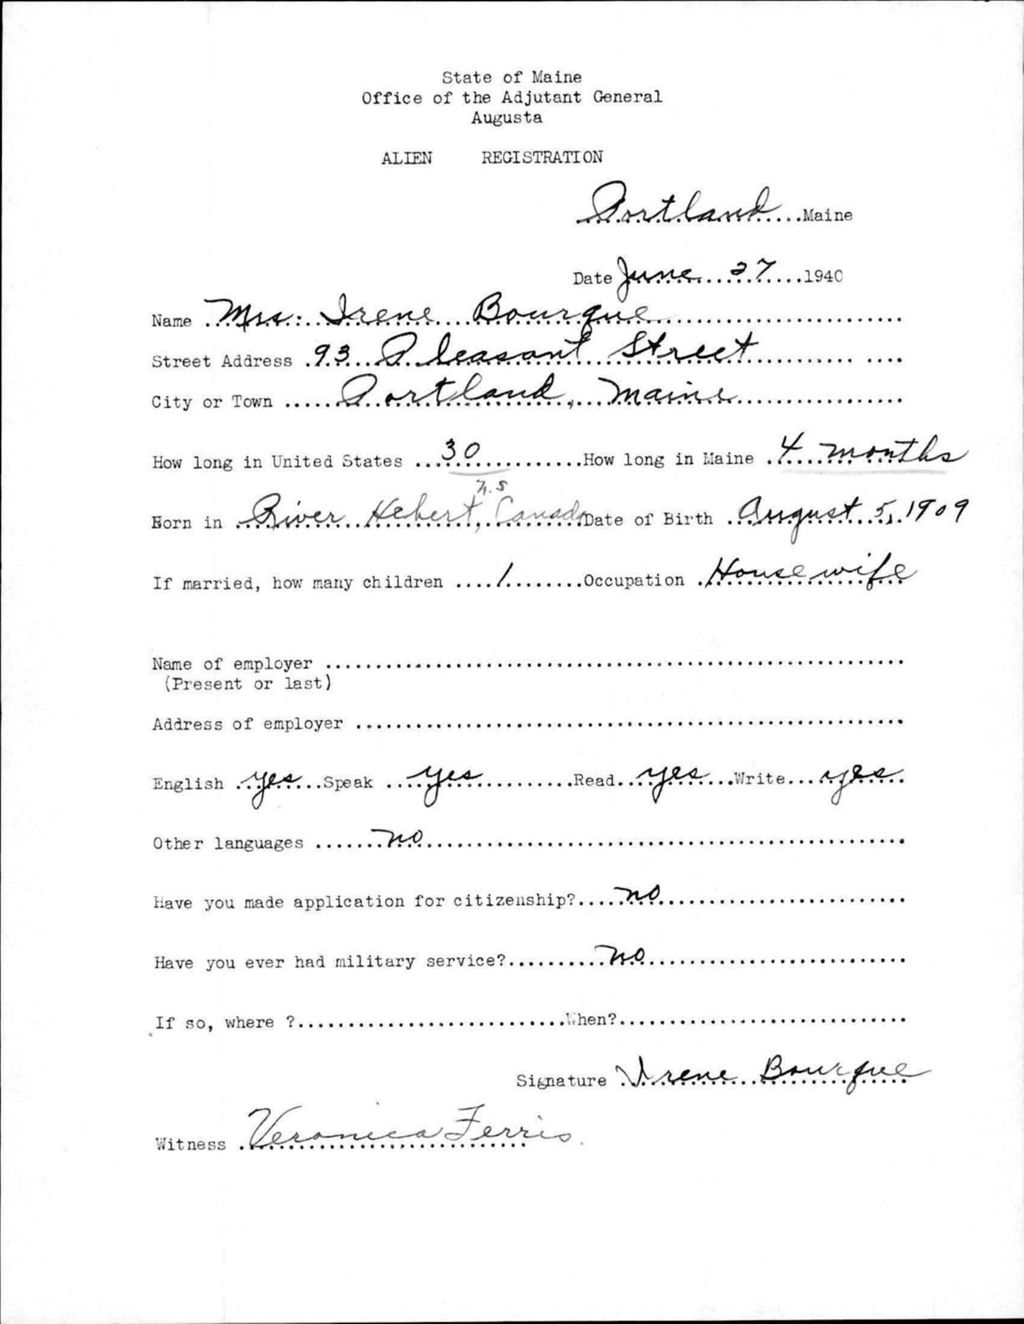 State of Maine
Office of the Adjutant General
Augusta
ALIEN REGISTRATION
Portland Maine
Date June 27 1940
Name Mrs. Irene Bourque
Street Address 93 Pleasant Street
City or Town Portland, Maine
How long in United States 30 How long in Maine 4 months
n.s
Born in River Hebert, Canada Date of Birth August 5, 1909
If married, how many children 1 Occupation Housewife
Name of employer
(Present or last)
Address of employer
English yes Speak yes Read yes Write yes
Other languages no
Have you made application for citizenship? no
Have you ever had military service? no
If so, where ? When?
Signature Irene Bourque
Witness Veronica Ferris.